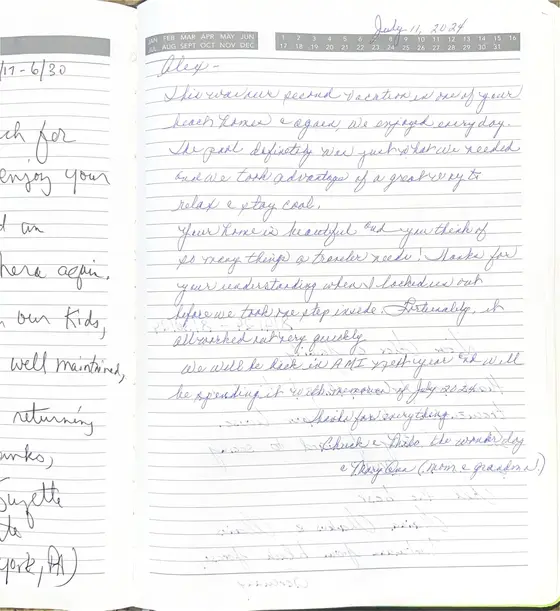 /17-6/30
ch for
enjoy your
d an
here again.
our Kids,
well maintained,
returning
anks,
Suzette
York, PA)
JAN FEB MAR APR MAY JUN
JUL AUG SEPT OCT NOV DEC
1 2 3 4 5 6 7 8 9 10 11 12 13 14 15 16
17 18 19 20 21 22 23 24 25 26 27 28 29 30 31
July 11, 2024
Alex -
This was our second vacation in one of your
beach homes & again, we enjoyed every day.
The pool definitely was just what we needed
and we took advantage of a great way to
relax & stay cool.
Your home is beautiful and you think of
so many things a traveler needs! Thanks for
your understanding when I locked us out
before we took one step inside. Fortunately, it
all worked out very quickly.
We will be back in AMI next year and will
be spending it with memories of July 2024.
Thanks for everything.
Chuck & the wonder dog
& Mary Ann (mom & grandma)